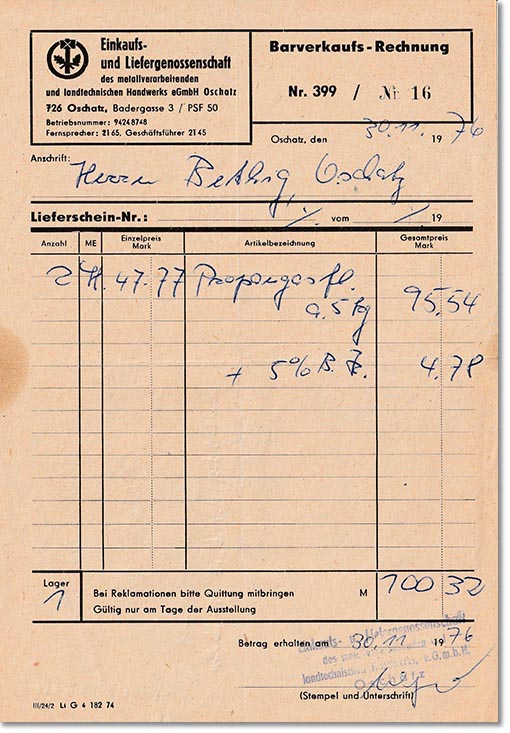 Einkaufs-
und Liefergenossenschaft
des metallverarbeitenden
und landtechnischen Handwerks eGmbH Oschatz
726 Oschatz, Badergasse 3 / PSF 50
Betriebsnummer: 94248748
Fernsprecher: 21 65, Geschäftsführer 21 45
Barverkaufs-Rechnung
Nr. 399 / Nr 16
Oschatz, den 30.11. 19 76
Anschrift: Herrn Bethig, Oschatz
Lieferschein-Nr.: ./. vom ./. 19
Anzahl ME Einzelpreis Mark Artikelbezeichnung Gesamtpreis Mark
2 47.77 Propangasfl.
a. 5 kg 95.54
+ 5% B. Z. 4.78
Lager
1
Bei Reklamationen bitte Quittung mitbringen M 100 32
Gültig nur am Tage der Ausstellung
Betrag erhalten am 30.11 19 76
Einkaufs- u. Liefergenossenschaft
landtechnischen e.G.m.b.H.
(Stempel und Unterschrift)
III/24/2 Li G 4 182 74